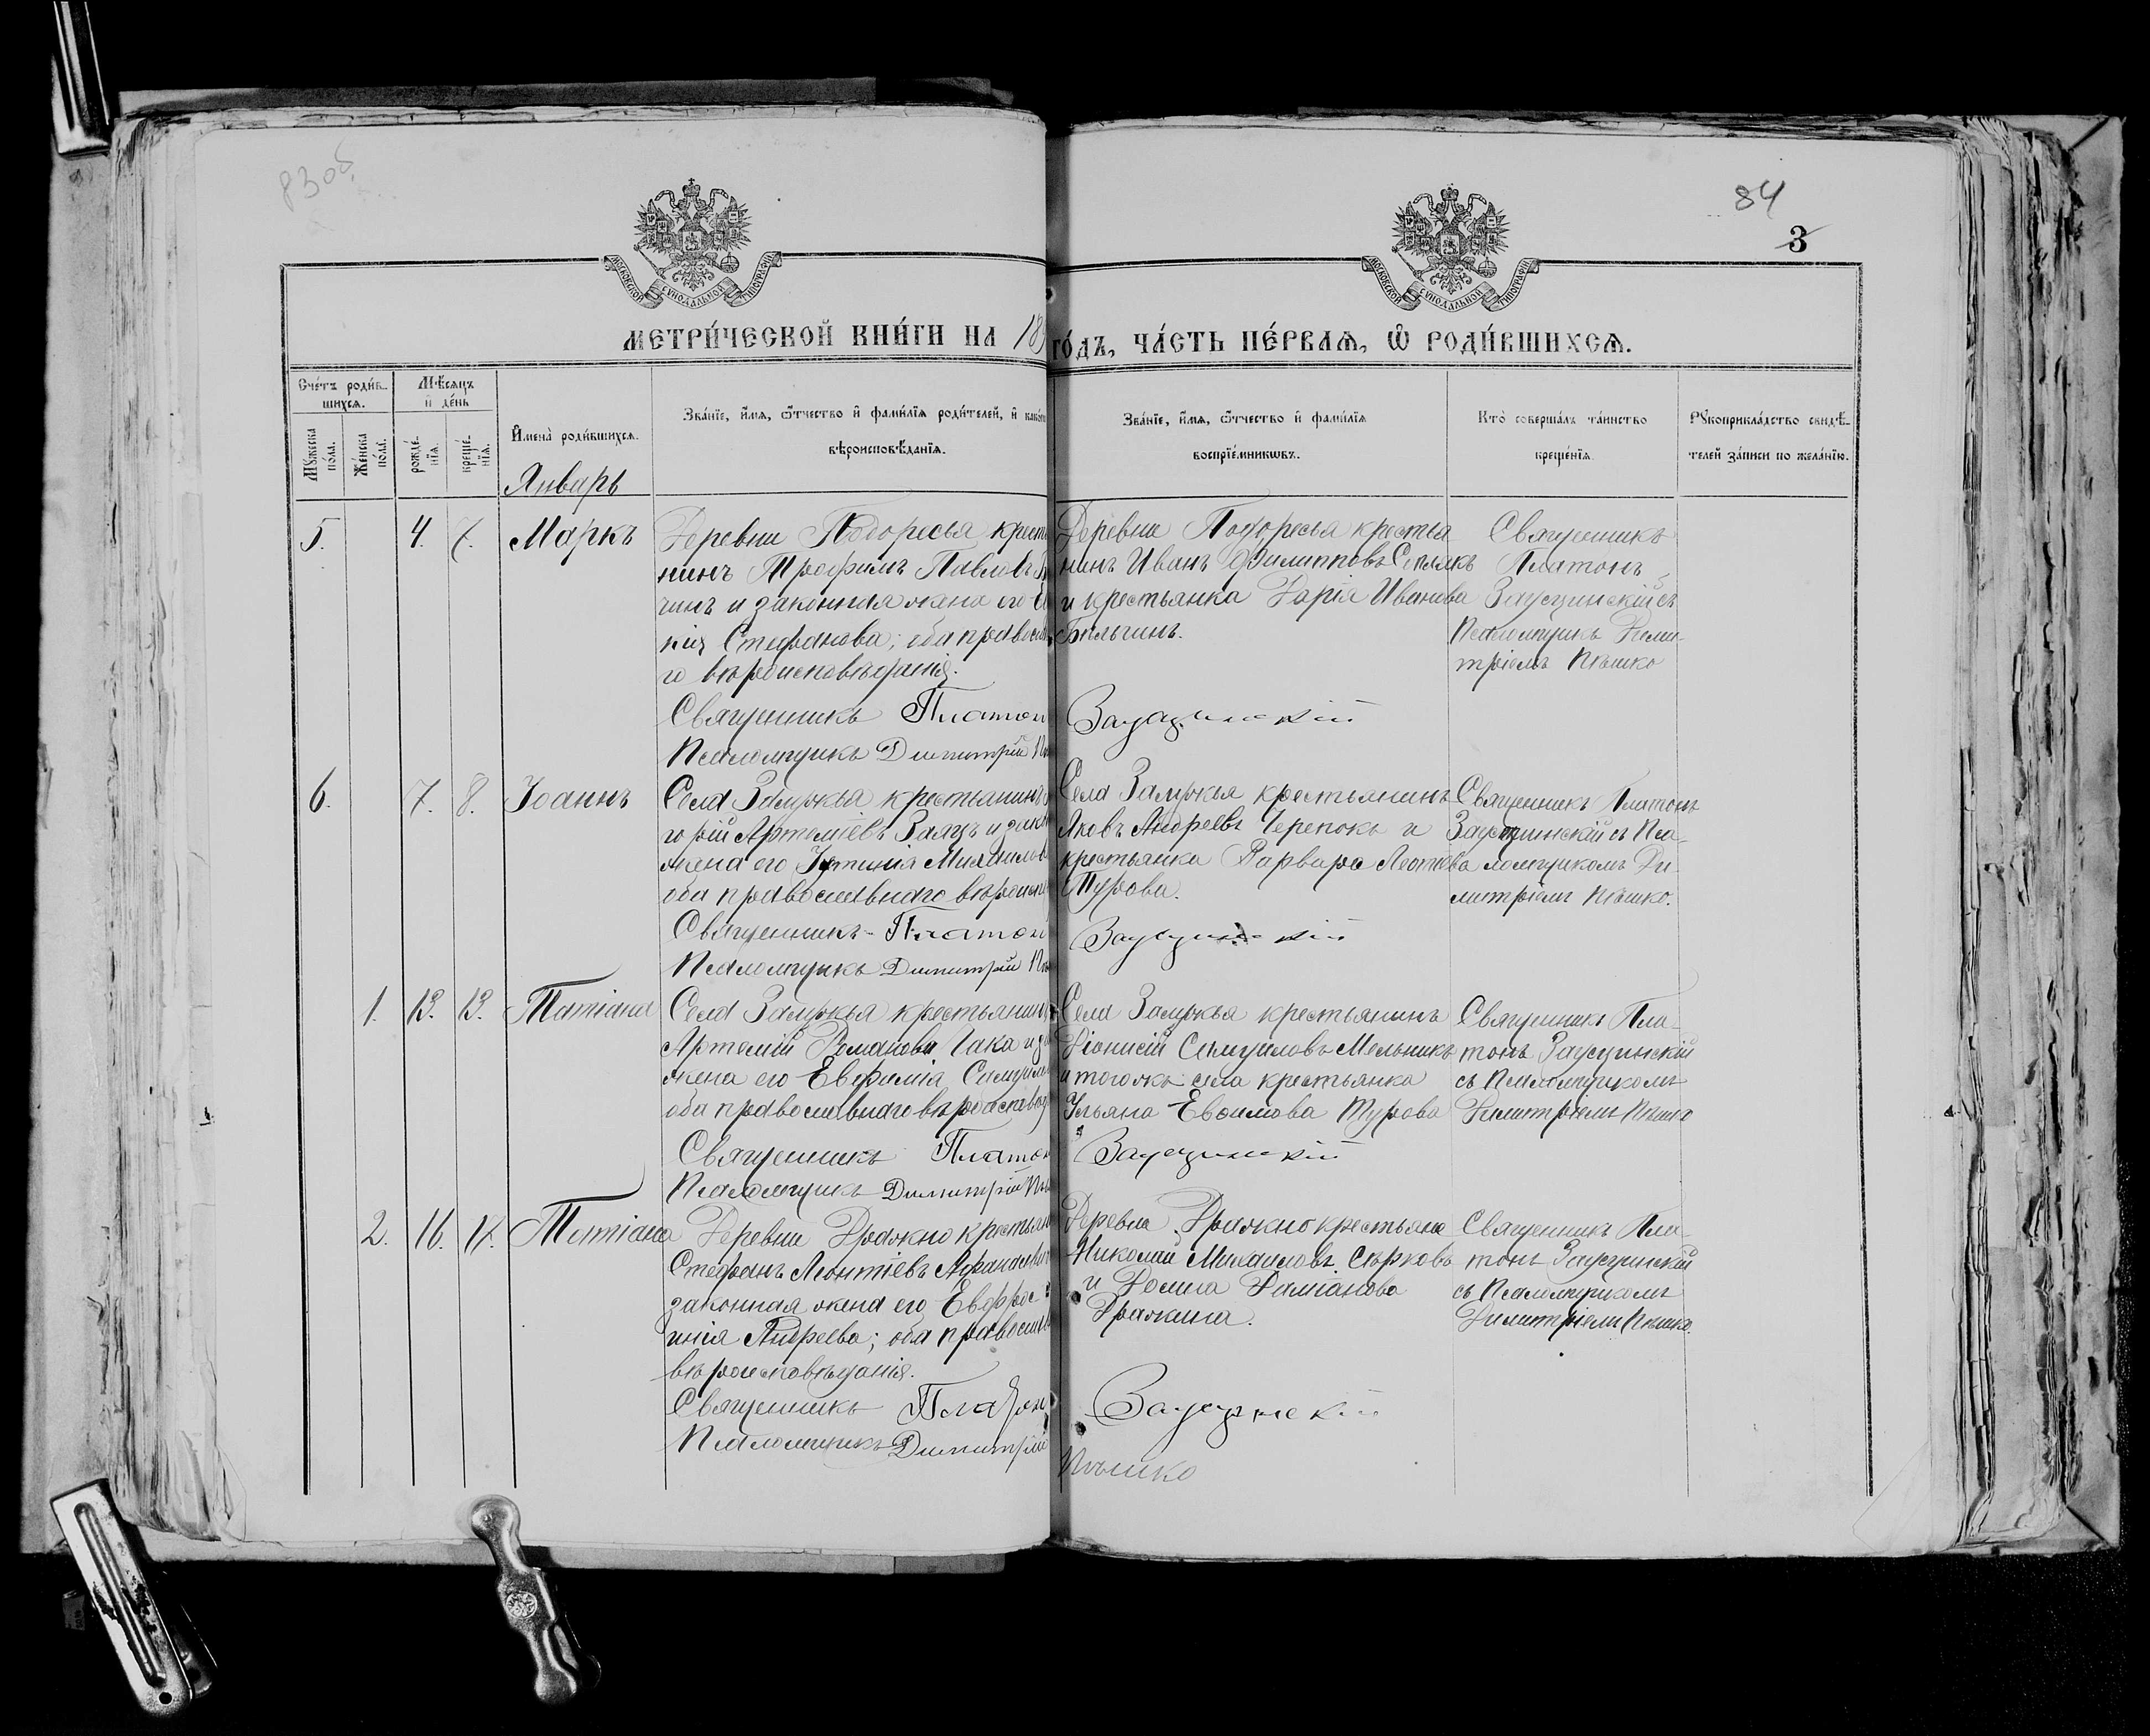 83об
84
3
МОСКОВСКОЙ СѴНОДАЛЬНОЙ ТИПОГРАФІИ
МОСКОВСКОЙ СѴНОДАЛЬНОЙ ТИПОГРАФІИ
МЕТРИ́ЧЕСКОЙ КНИ́ГИ НА 189
ГО́ДЪ, ЧА́СТЬ ПЕ́РВАѦ, Ѡ РОДИ́ВШИХСѦ.
Сче́тъ роди́в-
шихсѧ.
Мꙋжеска
по́ла.
Же́нска
по́ла.
Мѣ́сѧцъ
и҆ де́нь
рожде́-
нїѧ.
креще́-
нїѧ.
И҆мена̀ роди́вшихсѧ.
Январь
Зва́нїе, и҆́мѧ, ѻ҆́тчество и҆ фамѝлїѧ роди́телей, и҆ како́гѡ
вѣроисповѣ́данїѧ.
Зва́нїе, и҆́мѧ, ѻ҆́тчество и҆ фамѝлїѧ
воспрїе́мникѡвъ.
Кто̀ соверша́лъ та́инство
креще́нїѧ.
Рꙋкоприкла́дство свидѣ́-
телей за́писи по жела́нїю.
5. 4. 7. Маркъ
Деревни Подоресья крестья
нинъ Трофимъ Павловъ
чинъ и законная жена его
кія Стефанова; оба православна
го вѣроисповѣданія.
Священникъ Платон
Псаломщикъ Димитрій
Деревни Подоресья крестья
нинъ Иванъ Филипповъ Сельикъ
и крестьянка Дарія Иванова
Бильчинъ.
Заусцинскій
Священникъ
Платонъ
Заусцинскій съ
Псаломщикъ Дими-
тріемъ Пѣшко
6. 7. 8. Іоаннъ
Села Залужья крестьянинъ
горій Артеміевъ Заяцъ и зако
жена его Іустинія Михайлов
оба православнаго вѣроиспо
Священникъ Платон
Псаломщикъ Димитрій
Села Залужья крестьянинъ
Яковъ Андреевъ Черепокъ и
крестьянка Варвара Леонтіева
Турова.
Заусцинскій
Священникъ Платонъ
Заусцинскій съ Пса-
ломщикомъ Ди-
митріемъ Пѣшко.
1. 13. 13. Татіана
Села Залужья крестьянинъ
Артемій Романовъ Чака и за
жена его Евфимія Самуилов
оба православнаго вѣроисповѣд
Священникъ Платон
Псаломщикъ Димитрій
Села Залужья крестьянинъ
Діонисій Самуиловъ Мельникъ
и того же села крестьянка
Ульяна Евѳимова Турова
Заусцинскій
Священникъ Пла-
тонъ Заусцинскій
съ Псаломщикомъ
Димитріемъ Пѣшко
2. 16. 17. Татіана
Деревни Дражно крестьян
Стефанъ Леонтіевъ
законная жена его Евфро-
инія Андреева; оба православ
вѣроисповѣданія.
Священникъ Платон
Псаломщикъ Димитрій
Деревни Дражно крестьяне
Николай Михаиловъ Сѣрковъ
и Домна Даміанова
Дражина.
Заусцинскій
Пѣшко
Священникъ Пла-
тонъ Заусцинскій
съ Псаломщикомъ
Димитріемъ Пѣшко.